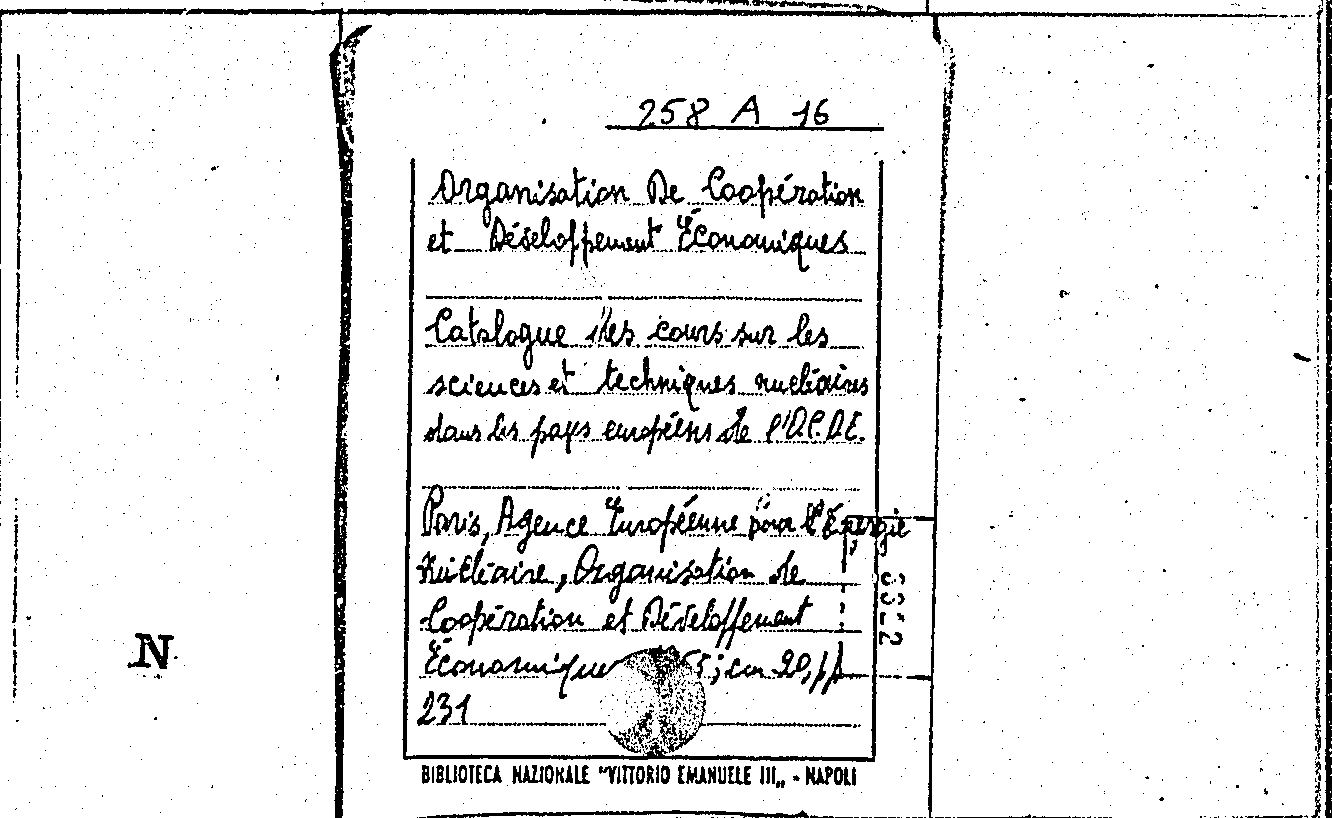 258 A 16
Organisation De Coopération
et Développement Économiques
Catalogue des cours sur les
sciences et techniques nucléaires
dans les pays européens de l'O.C.D.E.
Paris, Agence Européenne pour l'Énergie
Nucléaire, Organisation de
Coopération et Développement
Économiques 5; cm 20, pp
231
3322
N
BIBLIOTECA NAZIONALE "VITTORIO EMANUELE III„ - NAPOLI